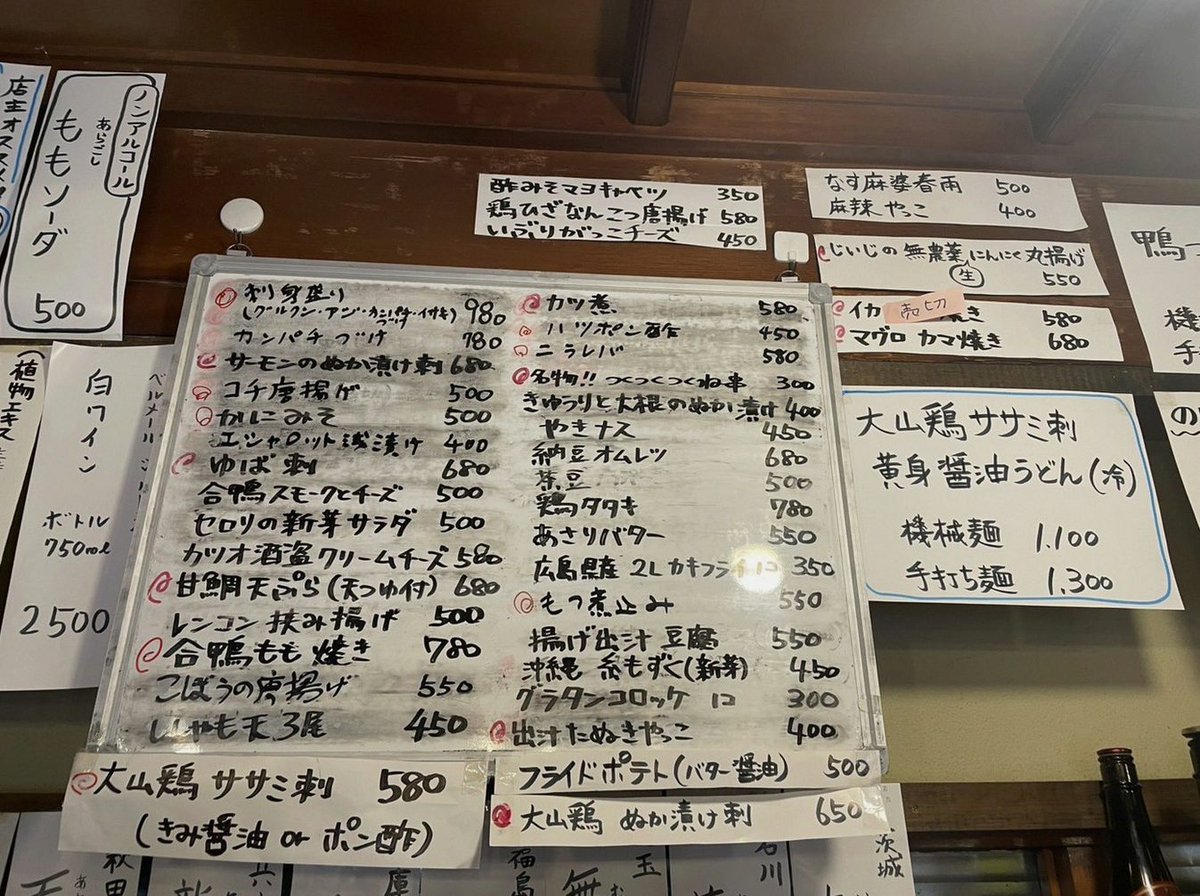 店主オススメ
ノンアルコール
あらごし
ももソーダ
500
(植物エキス
白ワイン
ボトル
750ml
2500
酢みそマヨキャベツ 350
鶏ひざなんこつ唐揚げ 580
いぶりがっこチーズ 450
なす麻婆春雨 500
麻辣やっこ 400
じいじの無農薬にんにく丸揚げ
(生) 550
イカ 売切 焼き 580
マグロ カマ焼き 680
刺身盛り
(グルクン・アジ・カンパチ・イサキ) 980
カンパチづけ 780
サーモンのぬか漬け刺 680
コチ唐揚げ 500
かにみそ 500
エシャロット浅漬け 400
ゆば刺 680
合鴨スモークとチーズ 500
セロリの新芽サラダ 500
カツオ酒盗クリームチーズ 580
甘鯛天ぷら(天つゆ付) 680
レンコン挟み揚げ 500
合鴨もも焼き 780
ごぼうの唐揚げ 550
ししゃも天3尾 450
カツ煮 580
ハツポン酢 450
ニラレバ 580
名物!! つくつくつくね串 300
きゅうりと大根のぬか漬け 400
やきナス 450
納豆オムレツ 680
茶豆 500
鶏タタキ 780
あさりバター 550
広島県産 2Lカキフライ1コ 350
もつ煮込み 550
揚げ出汁豆腐 550
沖縄 糸もずく(新芽) 450
グラタンコロッケ 1コ 300
出汁たぬきやっこ 400
大山鶏ササミ刺 580
(きみ醤油 or ポン酢)
フライドポテト(バター醤油) 500
大山鶏 ぬか漬け刺 650
大山鶏ササミ刺
黄身醤油うどん(冷)
機械麺 1.100
手打ち麺 1.300
鴨
機
手打
の
秋田
兵
庫
福島
玉
石川
茨城